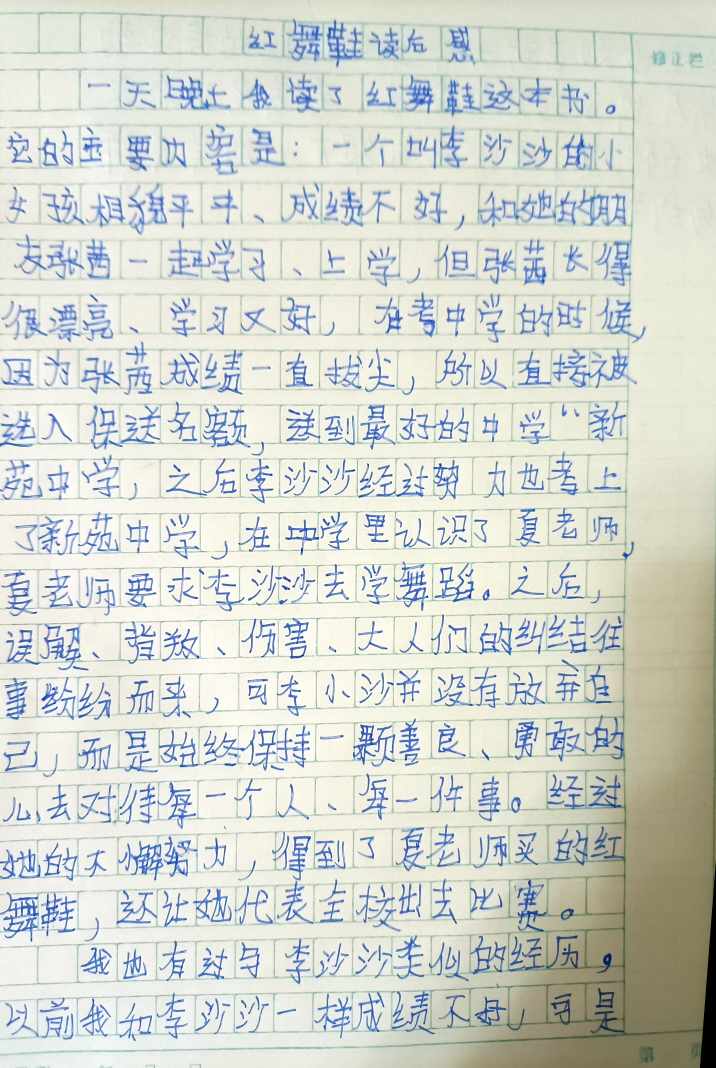 红舞鞋读后感
修正栏
一天晚上我读了红舞鞋这本书。
它的主要内容是：一个叫李沙沙的小
女孩相貌平平、成绩不好，和她的朋
友张茜一起学习、上学，但张茜长得
很漂亮、学习又好，在考中学的时候，
因为张茜成绩一直拔尖，所以直接被
选入保送名额，送到最好的中学“新
苑中学，之后李沙沙经过努力也考上
了新苑中学，在中学里认识了夏老师，
夏老师要求李沙沙去学舞蹈。之后，
误解、背叛、伤害、大人们的纠结往
事纷纷而来，可李小沙并没有放弃自
己，而是始终保持一颗善良、勇敢的
心去对待每一个人、每一件事。经过
她的不懈努力，得到了夏老师买的红
舞鞋，还让她代表全校出去比赛。
我也有过与李沙沙类似的经历，
以前我和李沙沙一样成绩不好，可是
第 页